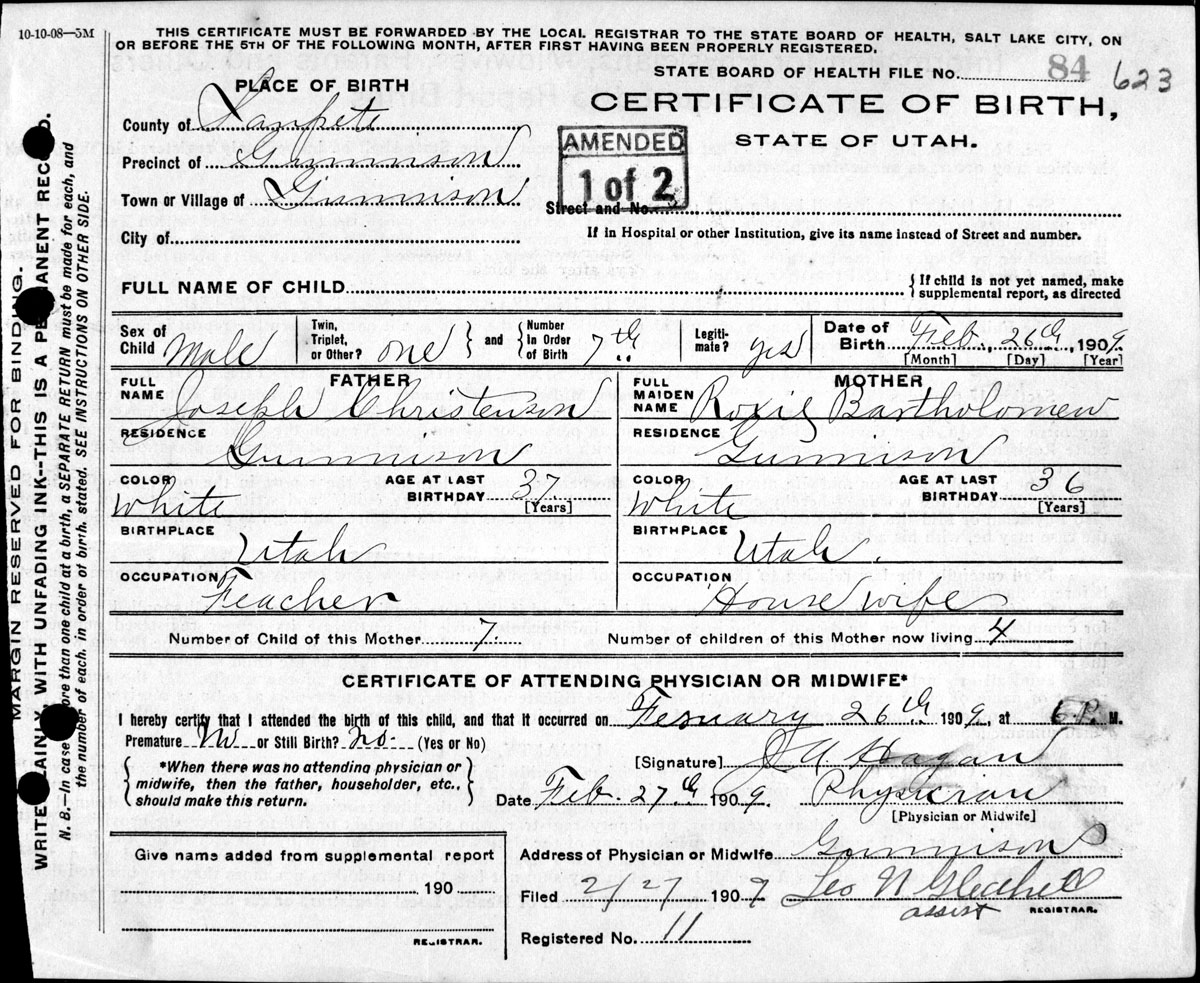 10-10-08—5M
THIS CERTIFICATE MUST BE FORWARDED BY THE LOCAL REGISTRAR TO THE STATE BOARD OF HEALTH, SALT LAKE CITY, ON
OR BEFORE THE 5TH OF THE FOLLOWING MONTH, AFTER FIRST HAVING BEEN PROPERLY REGISTERED.
STATE BOARD OF HEALTH FILE No. 84 623
PLACE OF BIRTH
CERTIFICATE OF BIRTH,
STATE OF UTAH.
County of Sanpete
Precinct of Gunnison
Town or Village of Gunnison
City of
AMENDED
1 of 2
Street and No.
If in Hospital or other Institution, give its name instead of Street and number.
FULL NAME OF CHILD
{ If child is not yet named, make
supplemental report, as directed
Sex of Child Male
Twin, Triplet, or Other? one } and { Number In Order of Birth 7th
Legiti-mate? yes
Date of Birth Feb., 26th, 1909.
[Month] [Day] [Year]
FATHER
FULL NAME Joseph Christenson
RESIDENCE Gunnison
COLOR White AGE AT LAST BIRTHDAY 37. [Years]
BIRTHPLACE Utah
OCCUPATION Teacher
MOTHER
FULL MAIDEN NAME Roxie Bartholomew
RESIDENCE Gunnison
COLOR White AGE AT LAST BIRTHDAY 36 [Years]
BIRTHPLACE Utah.
OCCUPATION House wife
Number of Child of this Mother 7. Number of children of this Mother now living 4
CERTIFICATE OF ATTENDING PHYSICIAN OR MIDWIFE*
I hereby certify that I attended the birth of this child, and that it occurred on Fesruary 26th 1909, at 6 P. M.
Premature No or Still Birth? No. (Yes or No)
*When there was no attending physician or
midwife, then the father, householder, etc.,
should make this return.
[Signature] J A Hagan
Date Feb. 27th 1909. Physician
[Physician or Midwife]
Give name added from supplemental report
190
REGISTRAR.
Address of Physician or Midwife Gunnison
Filed 2/27 1909 Leo N Gledhill
assist REGISTRAR.
Registered No. 11
MARGIN RESERVED FOR BINDING.
WRITE PLAINLY, WITH UNFADING INK--THIS IS A PERMANENT RECORD.
N. B.—In case more than one child at a birth, a SEPARATE RETURN must be made for each, and
the number of each, in order of birth, stated. SEE INSTRUCTIONS ON OTHER SIDE.